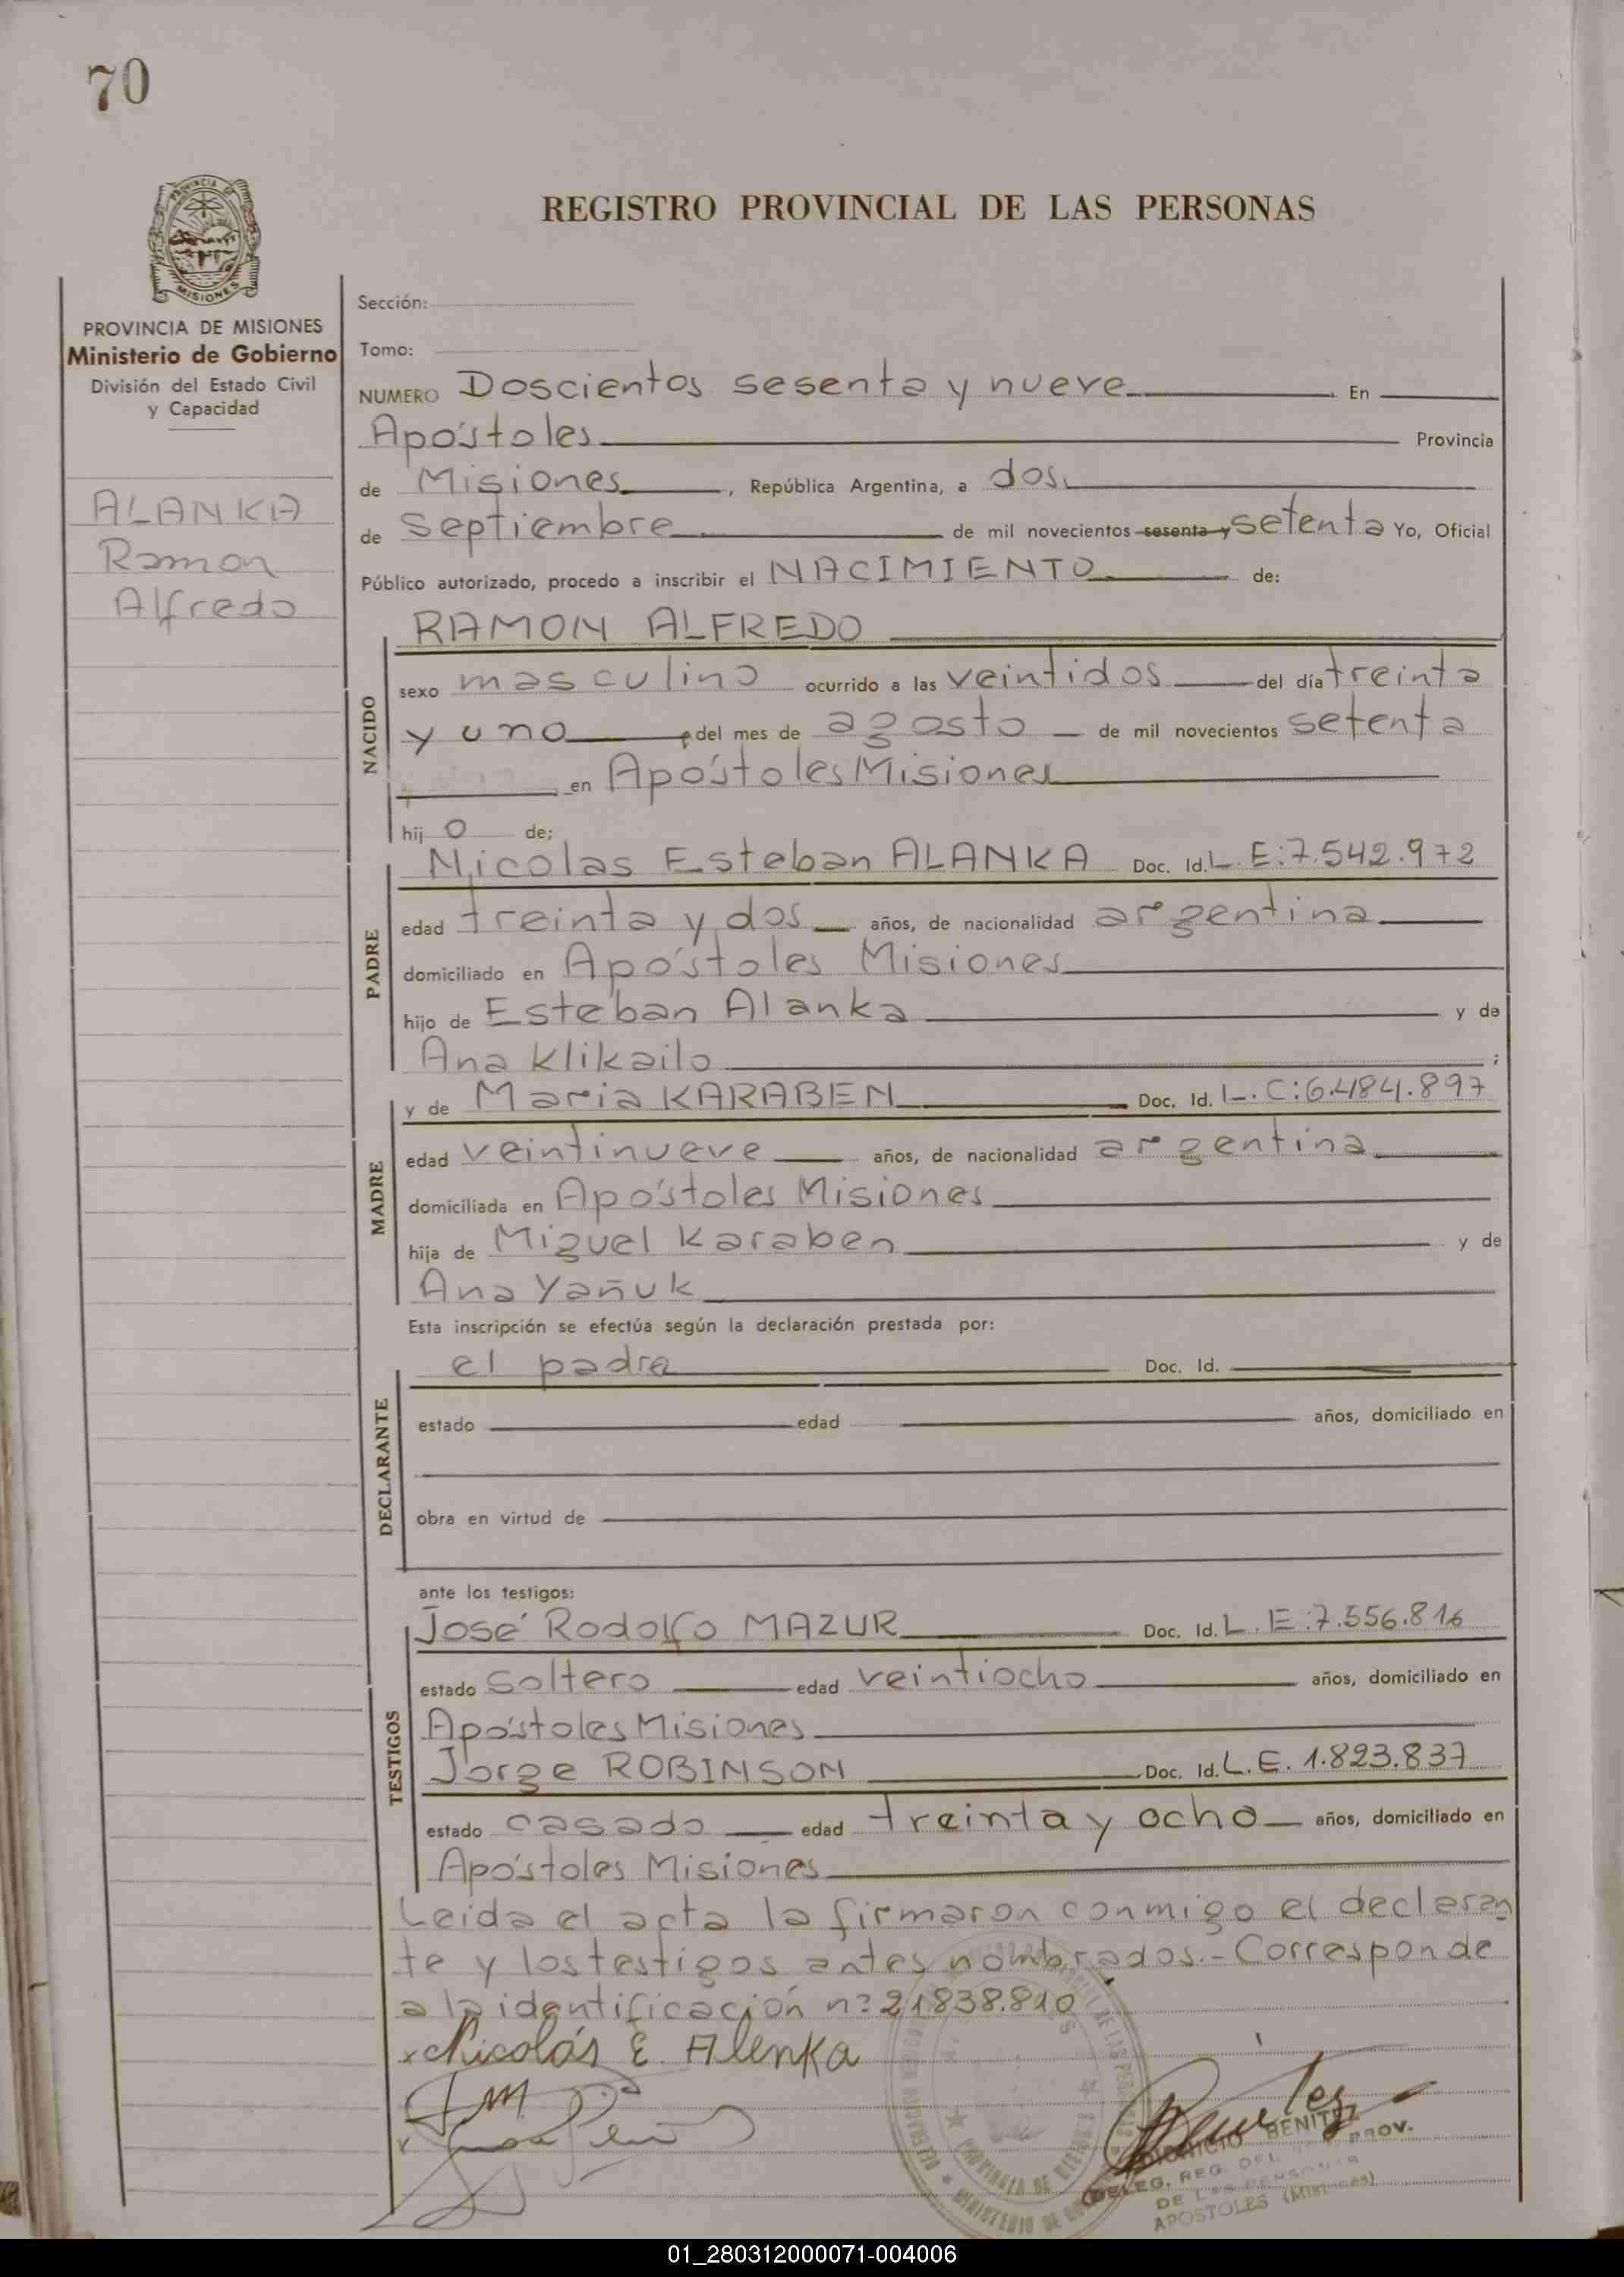 70
PROVINCIA DE MISIONES
Ministerio de Gobierno
División del Estado Civil
y Capacidad
ALANKA
Ramon
Alfredo
REGISTRO PROVINCIAL DE LAS PERSONAS
Sección:
Tomo:
NUMERO Doscientos sesenta y nueve En
Apóstoles Provincia
de Misiones, República Argentina, a dos
de Septiembre de mil novecientos sesenta y setenta Yo, Oficial
Público autorizado, procedo a inscribir el NACIMIENTO de:
RAMON ALFREDO
NACIDO
sexo masculino ocurrido a las veintidos del día treinta
y uno del mes de agosto de mil novecientos setenta
en Apóstoles Misiones
hijo de:
PADRE
Nicolas Esteban ALANKA Doc. Id. L. E: 7.542.972
edad treinta y dos años, de nacionalidad argentina
domiciliado en Apóstoles Misiones
hijo de Esteban Alanka y de
Ana Klikailo ;
MADRE
y de Maria KARABEN Doc. Id. L. C: 6.484.897
edad veintinueve años, de nacionalidad argentina
domiciliada en Apóstoles Misiones
hija de Miguel Karaben y de
Ana Yañuk
Esta inscripción se efectúa según la declaración prestada por:
DECLARANTE
el padre Doc. Id.
estado edad años, domiciliado en
obra en virtud de
ante los testigos:
TESTIGOS
José Rodolfo MAZUR Doc. Id. L. E: 7.556.816
estado soltero edad veintiocho años, domiciliado en
Apóstoles Misiones
Jorge ROBINSON Doc. Id. L. E. 1.823.837
estado casado edad treinta y ocho años, domiciliado en
Apóstoles Misiones
Leida el acta la firmaron conmigo el declaran
te y los testigos antes nombrados.- Corresponde
a la identificación nº 21.838.810
x Nicolás E. Alenka
BENITEZ
DELEG. REG. DEL PROV.
DE LAS PERSONAS
APOSTOLES (Misiones)
PROVINCIA DE MISIONES
MINISTERIO DE
01_280312000071-004006